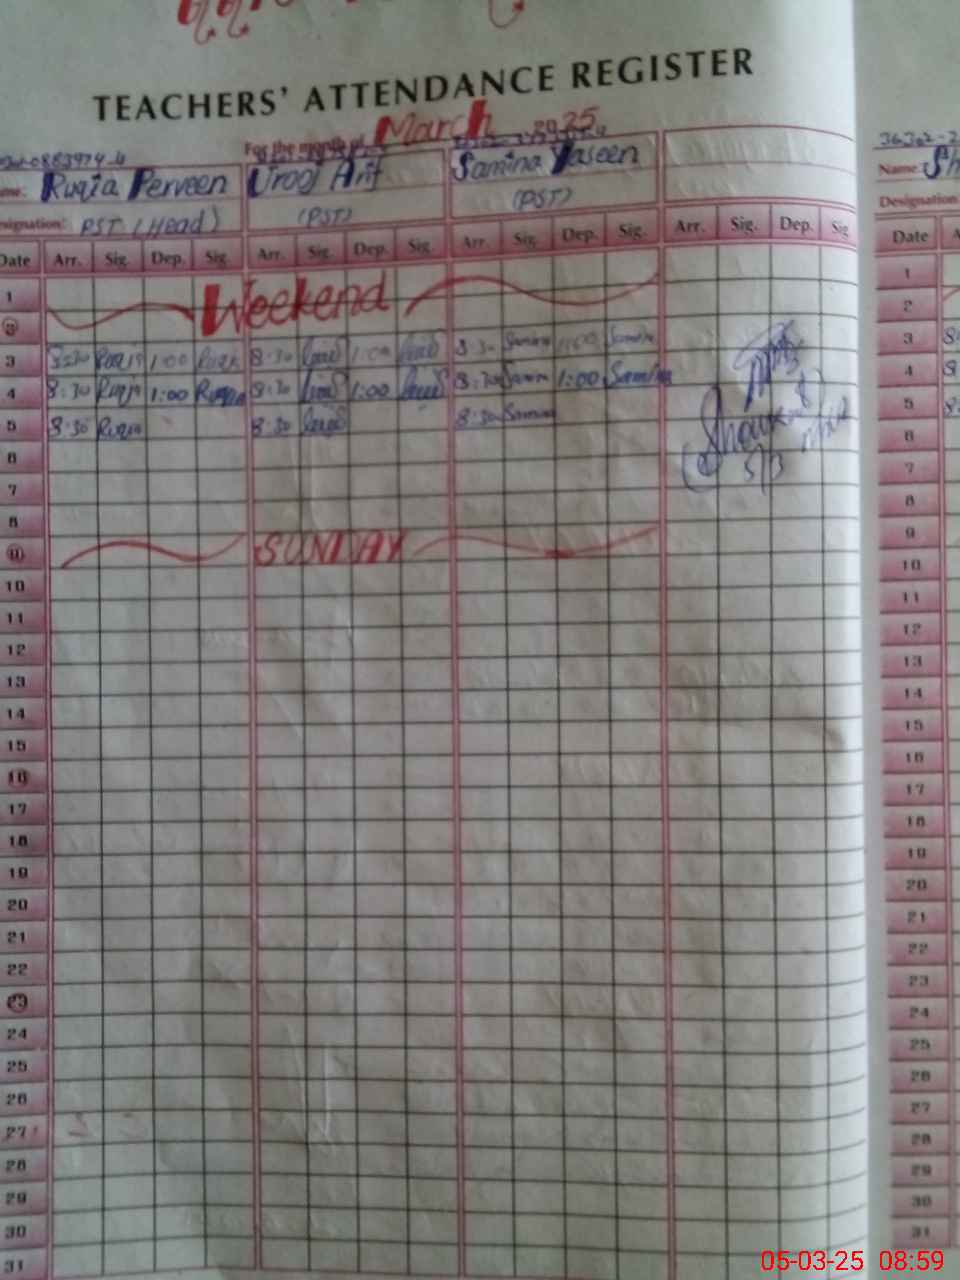 TEACHERS' ATTENDANCE REGISTER
For the month of March 2025
Name: Ruqia Perveen Urooj Arif Samina Yaseen
Designation: PST (Head) (PST) (PST)
Date Arr. Sig. Dep. Sig. Arr. Sig. Dep. Sig. Arr. Sig. Dep. Sig. Arr. Sig. Dep. Sig
1 Weekend
2
3 8:30 Ruqia 1:00 8:30 1:00 8:30 Samina 1:00 Samina
4 8:30 Ruqia 1:00 Ruqia 8:30 1:00 8:30 Samina 1:00 Samina
5 8:30 Ruqia 8:30 8:30 Samina
6
7
5/3
8
9 SUNDAY
10
11
12
13
14
15
16
17
18
19
20
21
22
23
24
25
26
27
28
29
30
31
Name:
Designation
Date
1
2
3
4
5
6
7
8
9
10
11
12
13
14
15
16
17
18
19
20
21
22
23
24
25
26
27
28
29
30
31
05-03-25 08:59